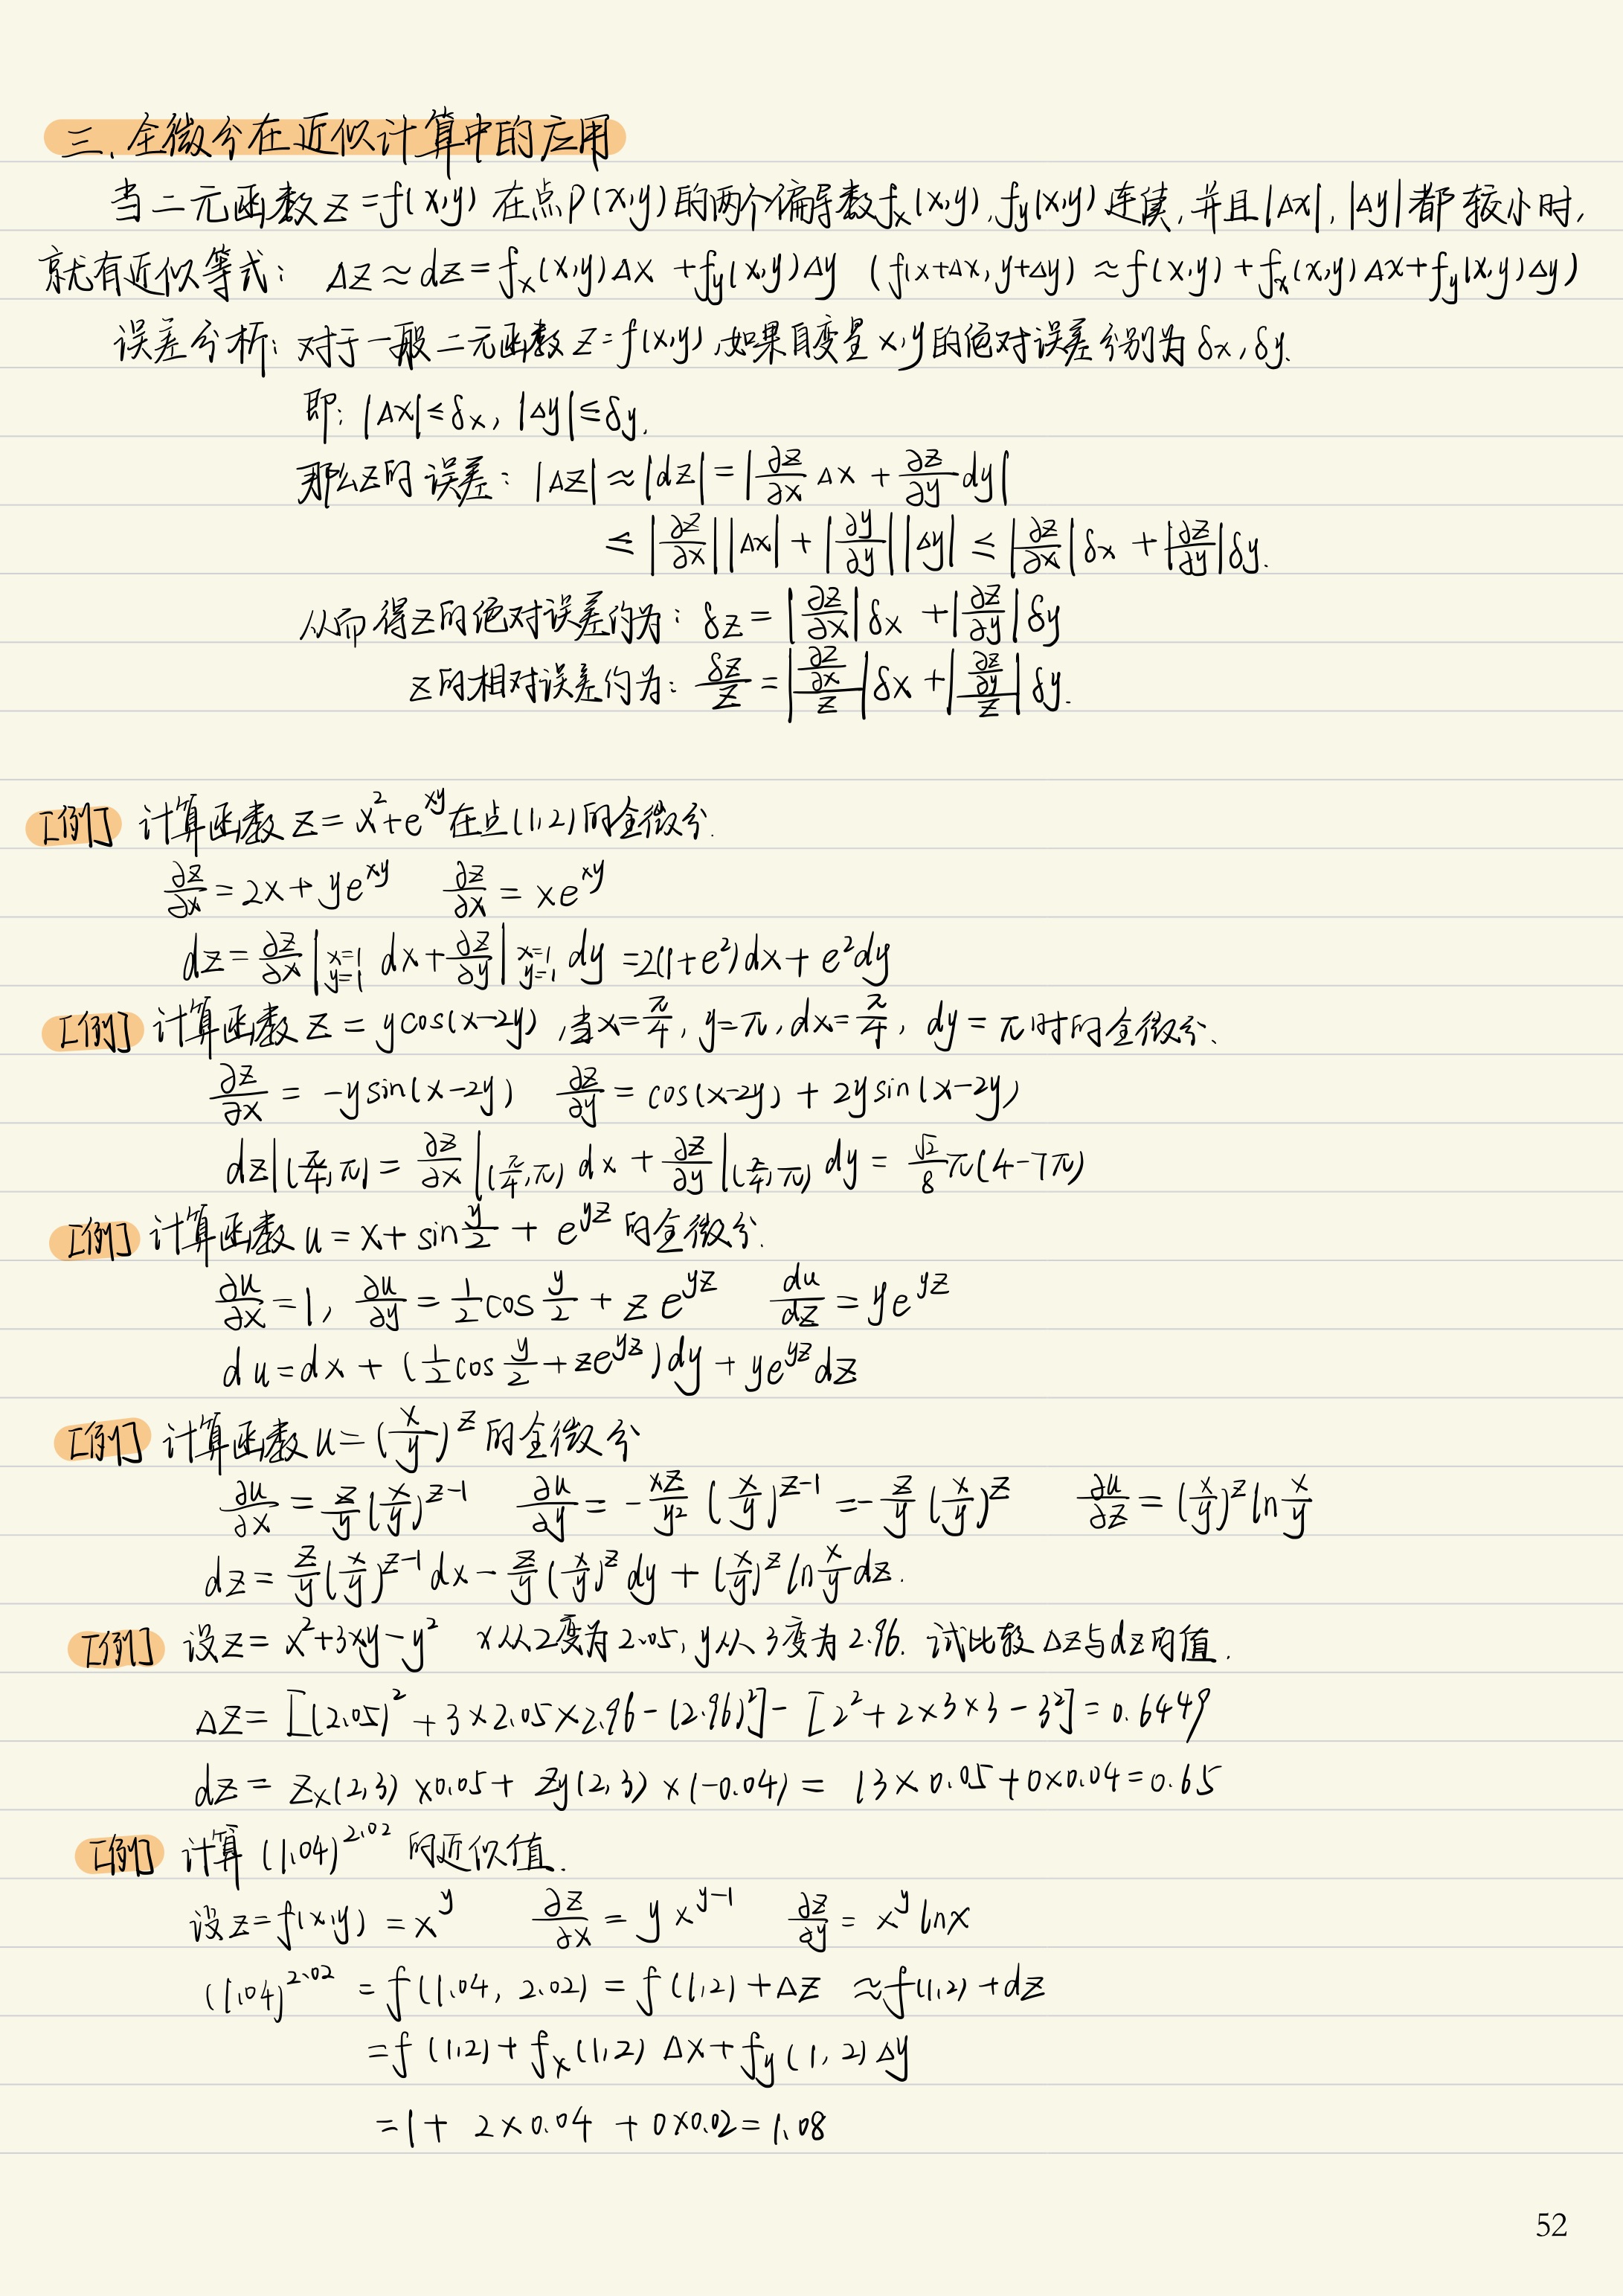 三、全微分在近似计算中的应用
当二元函数 z=f(x,y) 在点P(x,y)的两个偏导数f_x(x,y),f_y(x,y)连续,并且|Δx|,|Δy|都较小时,
就有近似等式: Δz≈dz=f_x(x,y)Δx+f_y(x,y)Δy (f(x+Δx,y+Δy)≈f(x,y)+f_x(x,y)Δx+f_y(x,y)Δy)
误差分析: 对于一般二元函数 z=f(x,y),如果自变量x,y的绝对误差分别为δx,δy.
即: |Δx|≤δx, |Δy|≤δy.
那么z的误差: |Δz|≈|dz|=|∂z/∂x Δx + ∂z/∂y dy|
≤|∂z/∂x||Δx|+|∂y/∂y||Δy|≤|∂z/∂x|δx+|∂z/∂y|δy.
从而得z的绝对误差约为: δz=|∂z/∂x|δx+|∂z/∂y|δy
z的相对误差约为: δz/z=|(∂z/∂x)/z|δx+|(∂z/∂y)/z|δy.
[例] 计算函数 z=x²+e^{xy}在点(1,2)的全微分.
∂z/∂x=2x+ye^{xy} ∂z/∂x=xe^{xy}
dz=∂z/∂x|_{x=1 y=1} dx+∂z/∂y|_{x=1 y=1} dy=2(1+e²)dx+e²dy
[例] 计算函数 z=ycos(x-2y),当x=π/4, y=π, dx=π/4, dy=π时的全微分.
∂z/∂x=-ysin(x-2y) ∂z/∂y=cos(x-2y)+2ysin(x-2y)
dz|(π/4,π)=∂z/∂x|(π/4,π) dx+∂z/∂y|(π/4,π) dy=√2/8 π(4-7π)
[例] 计算函数 u=x+sin y/2+e^{yz}的全微分.
∂u/∂x=1, ∂u/∂y=1/2 cos y/2+ze^{yz} du/dz=ye^{yz}
du=dx+(1/2 cos y/2+ze^{yz})dy+ye^{yz}dz
[例] 计算函数 u=(x/y)^z的全微分
∂u/∂x=z/y (x/y)^{z-1} ∂u/∂y=-xz/y² (x/y)^{z-1}=-z/y (x/y)^z ∂u/∂z=(x/y)^z ln x/y
dz=z/y (x/y)^{z-1}dx-z/y (x/y)^z dy+(x/y)^z ln x/y dz.
[例] 设z=x²+3xy-y² x从2变为2.05, y从3变为2.96. 试比较Δz与dz的值.
Δz=[(2.05)²+3×2.05×2.96-(2.96)²]-[2²+2×3×3-3²]=0.6449
dz=z_x(2,3)×0.05+z_y(2,3)×(-0.04)=13×0.05+0×0.04=0.65
[例] 计算(1.04)^{2.02}的近似值.
设z=f(x,y)=x^y ∂z/∂x=yx^{y-1} ∂z/∂y=x^y lnx
(1.04)^{2.02}=f(1.04, 2.02)=f(1,2)+Δz≈f(1,2)+dz
=f(1,2)+f_x(1,2)Δx+f_y(1,2)Δy
=1+2×0.04+0×0.02=1.08
52